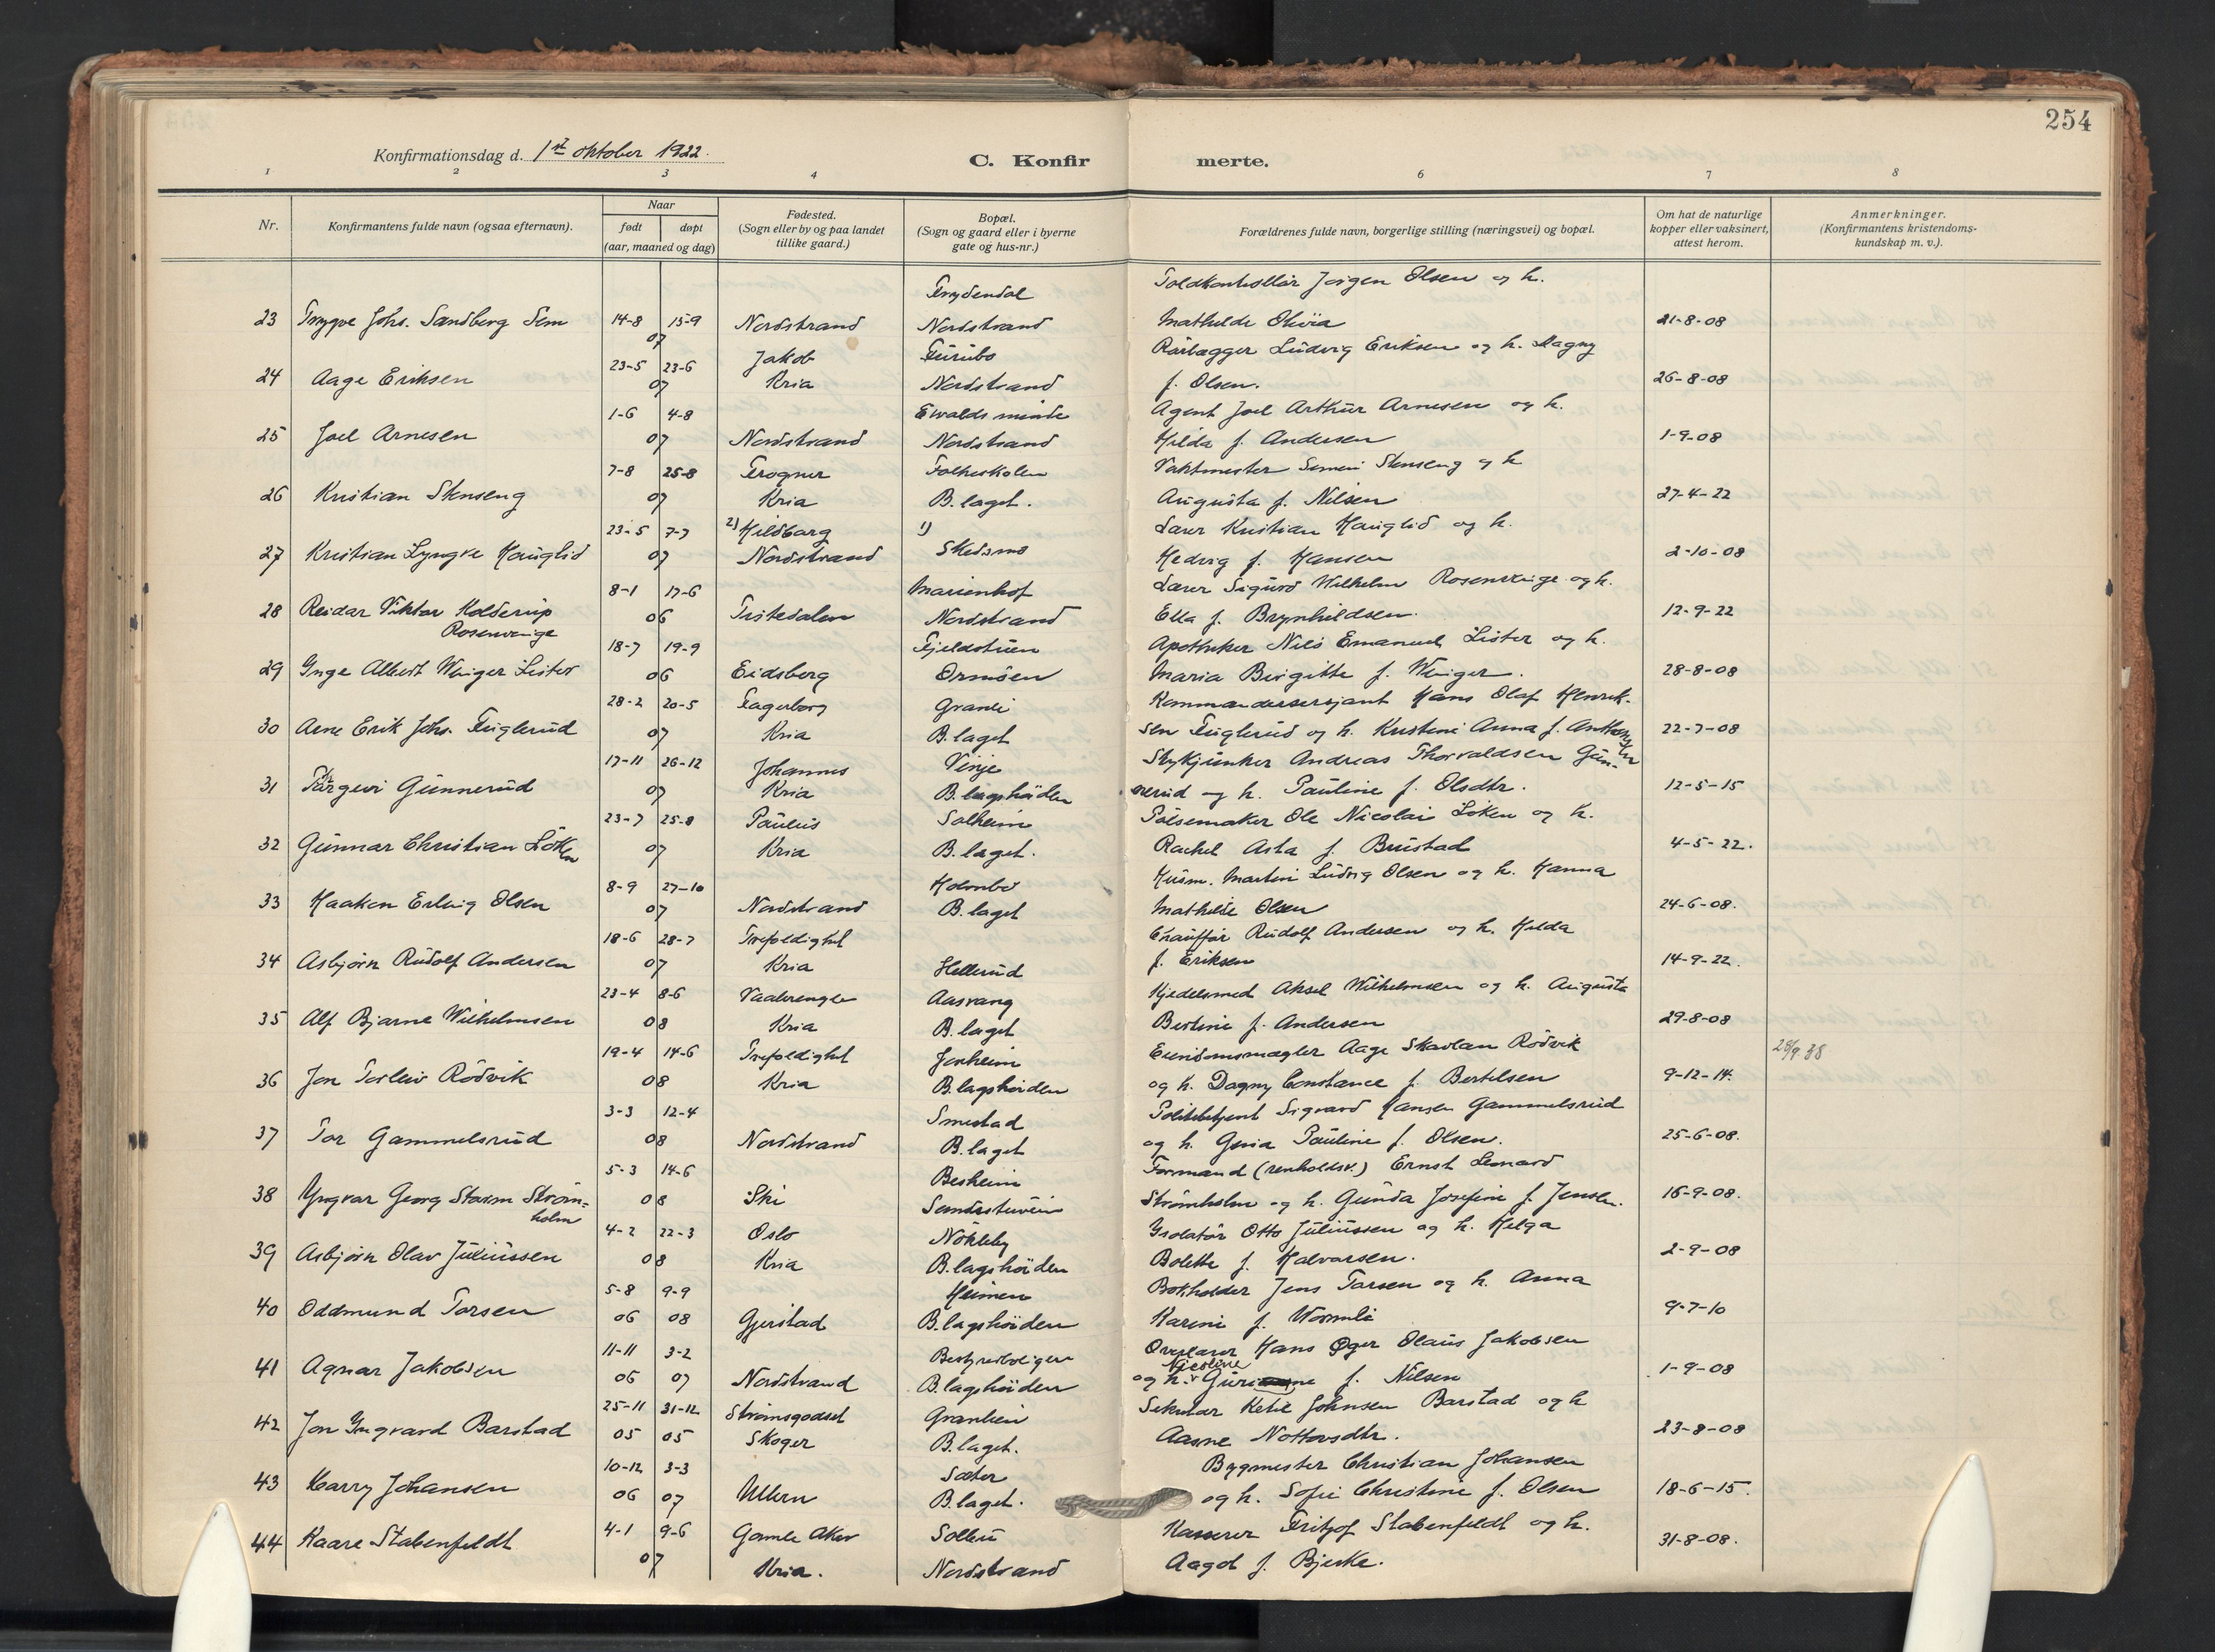 254
Konfirmationsdag d. 1st oktober 1922.
C. Konfir merte.
1 2 3 4 6 7 8
Nr.
Konfirmantens fulde navn (ogsaa efternavn).
Naar
født døpt
(aar, maaned og dag)
Fødested.
(Sogn eller by og paa landet
tillike gaard.)
Bopæl.
(Sogn og gaard eller i byerne
gate og hus-nr.)
Forældrenes fulde navn, borgerlige stilling (næringsvei) og bopæl.
Om hat de naturlige
kopper eller vaksinert,
attest herom.
Anmerkninger.
(Konfirmantens kristendoms-
kundskap m. v.).
Frydendal Toldkontrollør Jørgen Olsen og h.
23 Trygve Johs. Sandberg Sem 14-8 15-9 07 Nordstrand Nordstrand Mathilde Olivia 21-8-08
23-5 23-6 Jakob Furubo Rørlægger Ludvig Eriksen og h. Magny
24 Aage Eriksen 07 Kria Nordstrand f. Olsen. 26-8-08
1-6 4-8 Ewalds minde Agent Joel Arthur Arnesen og h.
25 Joel Arnesen 07 Nordstrand Nordstrand Hilda f. Andersen 1-9-08
7-8 25-8 Frogner Folkeskolen Vaktmester Simen Stenseng og h
26 Kristian Stenseng 07 Kria B. laget. Augusta f. Nilsen 27-4-22
23-5 7-7 2) Hildbarg 1) Lærer Kristian Hauglid og h.
27 Kristian Lyngve Hauglid 07 Nordstrand Skedsmo Hedvig f. Hansen 2-10-08
8-1 17-6 Marienhof Lærer Sigurd Wilhelm Rosenvinge og h.
28 Reidar Viktor Kolderup 06 Tistedalen Nordstrand Ella f. Brynhildsen. 12-9-22
Rosenvinge
18-7 19-9 Fjeldstuen Apotheker Nils Emanuel Lister og h.
29 Ynge Albert Winger Lister 06 Eidsberg Ormöen Maria Birgitte f. Winger. 28-8-08
28-2 20-5 Fagerborg Granli Kommandersersjant Hans Olaf Henrik-
30 Arne Erik Johs. Fuglerud 07 Kria B. laget sen Fuglerud og h. Kristine Anna f. Anthonsen 22-7-08
17-11 26-12 Johannes Vinje Stykjunker Andreas Thorvaldsen Gun-
31 Gunnerud 07 Kria B. lagshöiden nerud og h. Pauline f. Olsdtr. 12-5-15
23-7 25-8 Paulus Solheim Pölsemaker Ole Nicolai Löken og h.
32 Gunnar Christian Löken 07 Kria B. laget. Rachel Asta f. Brustad 4-5-22.
8-9 27-10 Holmbo Husm. Martin Ludvig Olsen og h. Hanna
33 Haakon Erling Olsen 07 Nordstrand B. laget Mathilde Olsen 24-6-08.
18-6 28-7 Trefoldighet Chauffør Rudolf Andersen og h. Hilda
34 Asbjørn Rudolf Andersen 07 Kria Hellerud f. Eriksen 14-9-22.
23-4 8-6 Vaalerengen Aasvang Kjedelsmed Aksel Wilhelmsen og h. Augusta
35 Alf Bjarne Wilhelmsen 08 Kria B. laget Bertine f. Andersen 29-8-08
19-4 14-6 Trefoldighet Jonheim Eiendomsmægler Aage Skavlan Rödvik 28/9.38
36 Jon Torleiv Rödvik 08 Kria B. lagshöiden og h. Dagny Constance f. Bertelsen 9-12-14.
3-3 12-4 Smestad Politibetjent Sigvard Hansen Gammelsrud
37 Tor Gammelsrud 08 Nordstrand B. laget og h. Pauline f. Olsen. 25-6-08.
5-3 14-6 Besheim Formand (renholdsv.) Ernst Leonard
38 Yngvar Georg Storm Ström= 08 Ski Sandstuveien Strömholm og h. Gunda Josefine f. Jensen. 16-9-08.
holm
4-2 22-3 Oslo Nökleby Isolatör Otto Juliussen og h. Helga
39 Asbjørn Olav Juliussen 08 Kria B. lagshöiden Bolette f. Halvorsen. 2-9-08
5-8 9-9 Heimen Bokholder Jens Torsen og h. Anna
40 Oddmund Torsen 06 08 Gjerstad B. lagshöiden Karine f. Wormli 9-7-10
11-11 3-2 Bestyrerboligen Overlærer Hans Øger Olaus Jakobsen
Nicoline
41 Agnar Jakobsen 06 07 Nordstrand B. lagshöiden og h. Guri f. Nilsen 1-9-08
25-11 31-12 Strömsgodset Granheim Sekretær Ketil Johnsen Barstad og h
42 Jon Yngvard Barstad 05 05 Skoger B. laget. Aasne Nottovsdtr. 23-8-08
10-12 3-3 Sæter Bygmester Christian Johansen
43 Harry Johansen 06 07 Ullern B. laget. og h. Sofie Christine f. Olsen 18-6-15.
4-1 9-6 Gamle Aker Solli Kasserer Fritjof Stabenfeldt og h.
44 Kaare Stabenfeldt 07 Kria. Nordstrand Aagot f. Bjerke. 31-8-08.